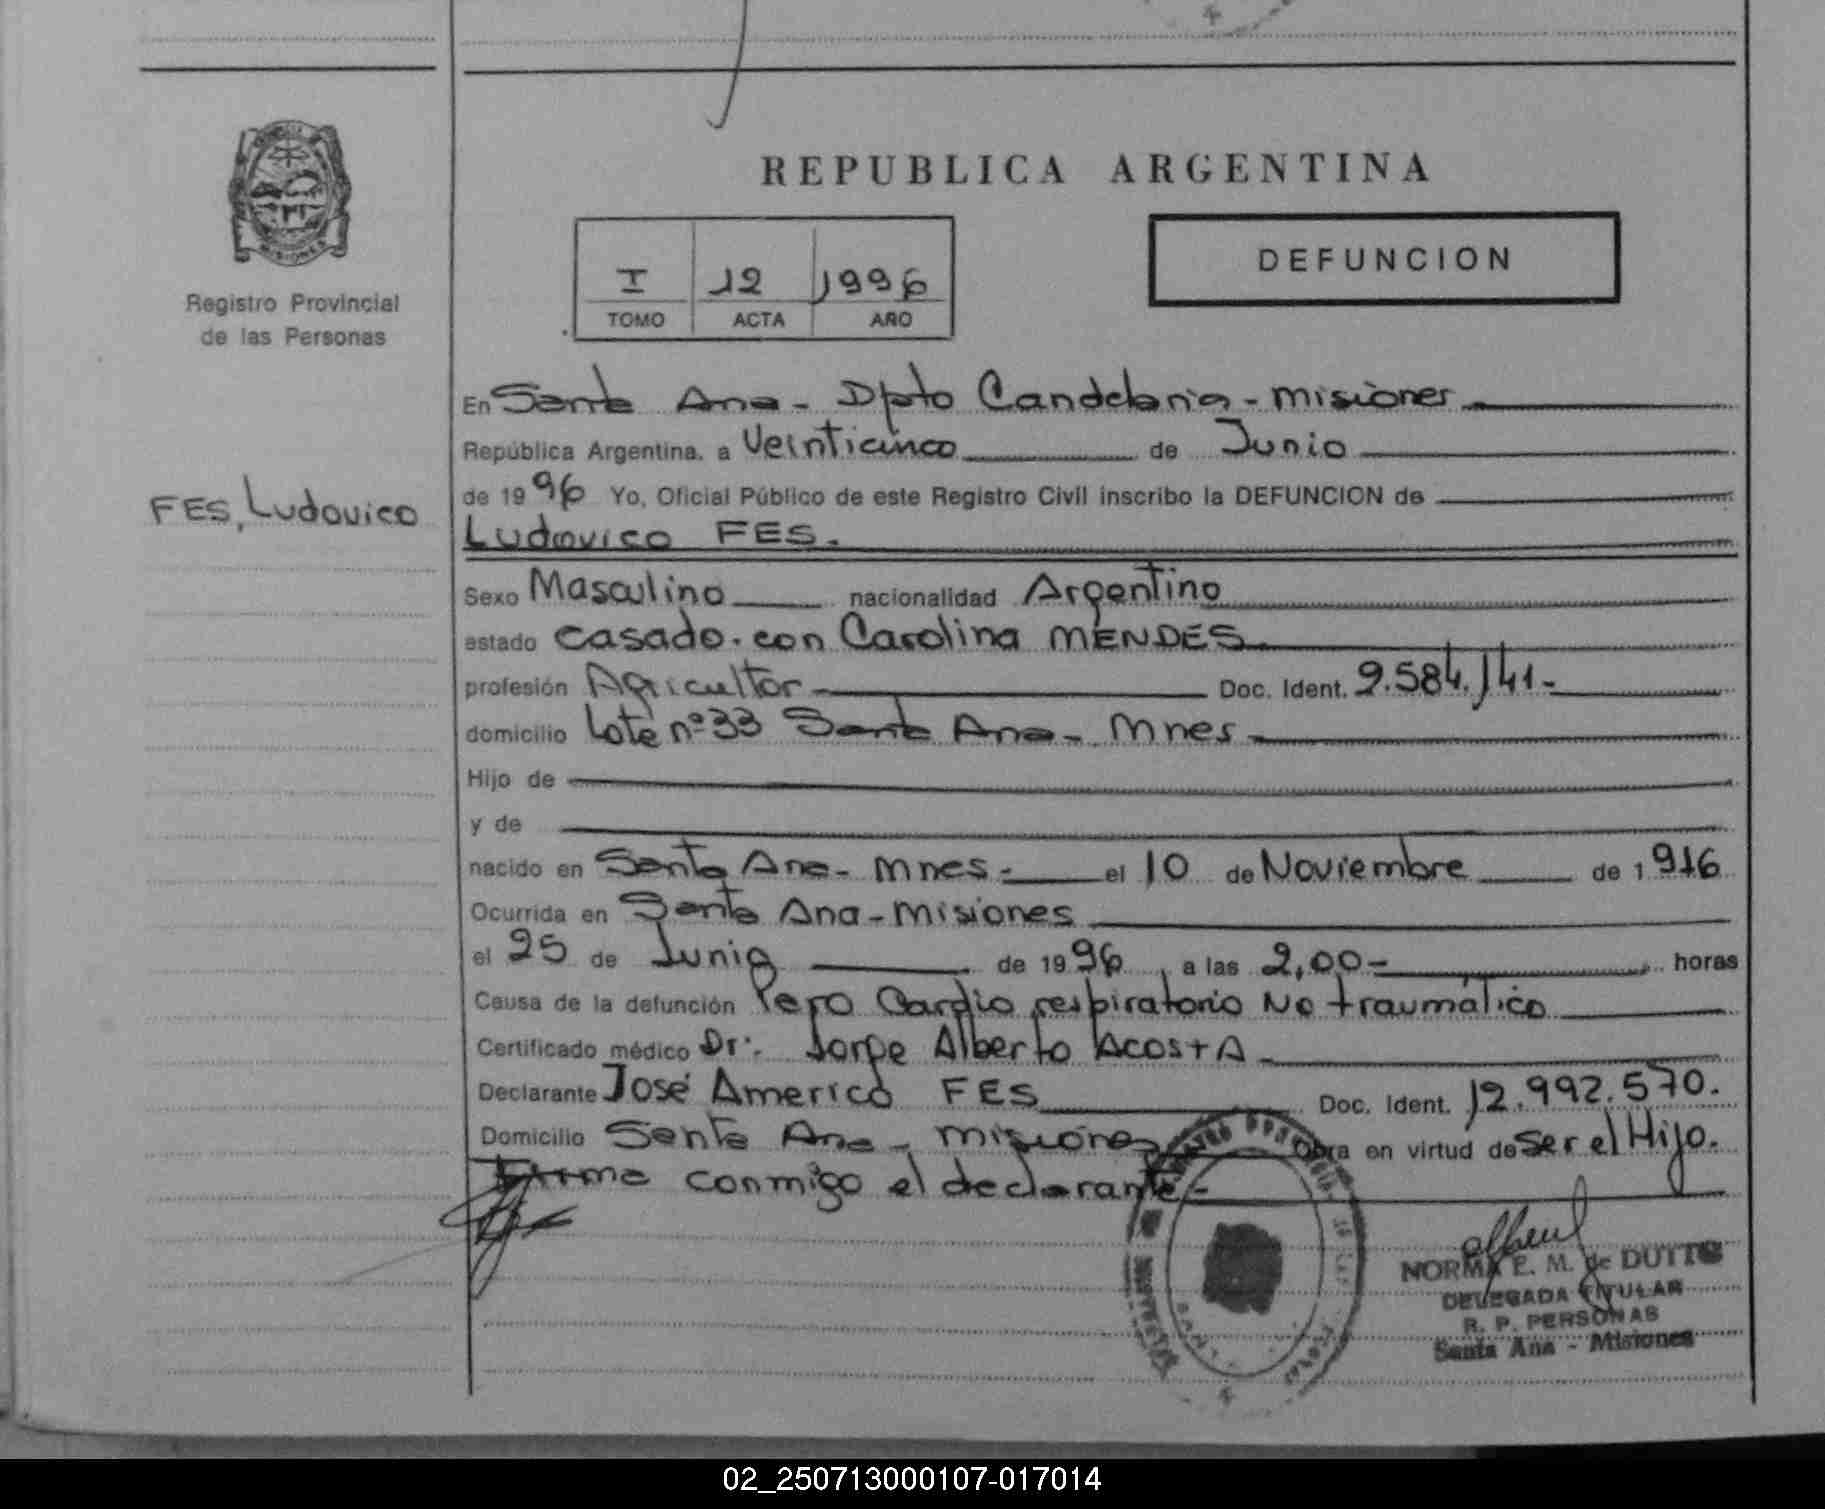 REPUBLICA ARGENTINA
MISIONES
Registro Provincial
de las Personas
I 12 1996
TOMO ACTA AÑO
DEFUNCION
En Santa Ana - Dpto Candelaria - Misiones
República Argentina, a Veinticinco de Junio
de 1996 Yo, Oficial Público de este Registro Civil inscribo la DEFUNCION de
FES, Ludovico
Ludovico FES.
Sexo Masculino nacionalidad Argentino
estado casado. con Carolina MENDES
profesión Agricultor Doc. Ident. 9.584.141-
domicilio Lote nº 33 Santa Ana - Mnes
Hijo de
y de
nacido en Santa Ana - Mnes - el 10 de Noviembre de 1916
Ocurrida en Santa Ana - Misiones
el 25 de Junio de 1996, a las 2,00- horas
Causa de la defunción Paro Cardio respiratorio No traumático
Certificado médico Dr. Jorge Alberto Acosta
Declarante José Americo FES Doc. Ident. 12.992.570.
Domicilio Santa Ana - Misiones Obra en virtud de ser el Hijo.
Firma conmigo el declarante -
NORMA E. M. de DUTTO
DELEGADA TITULAR
R. P. PERSONAS
Santa Ana - Misiones
02_250713000107-017014